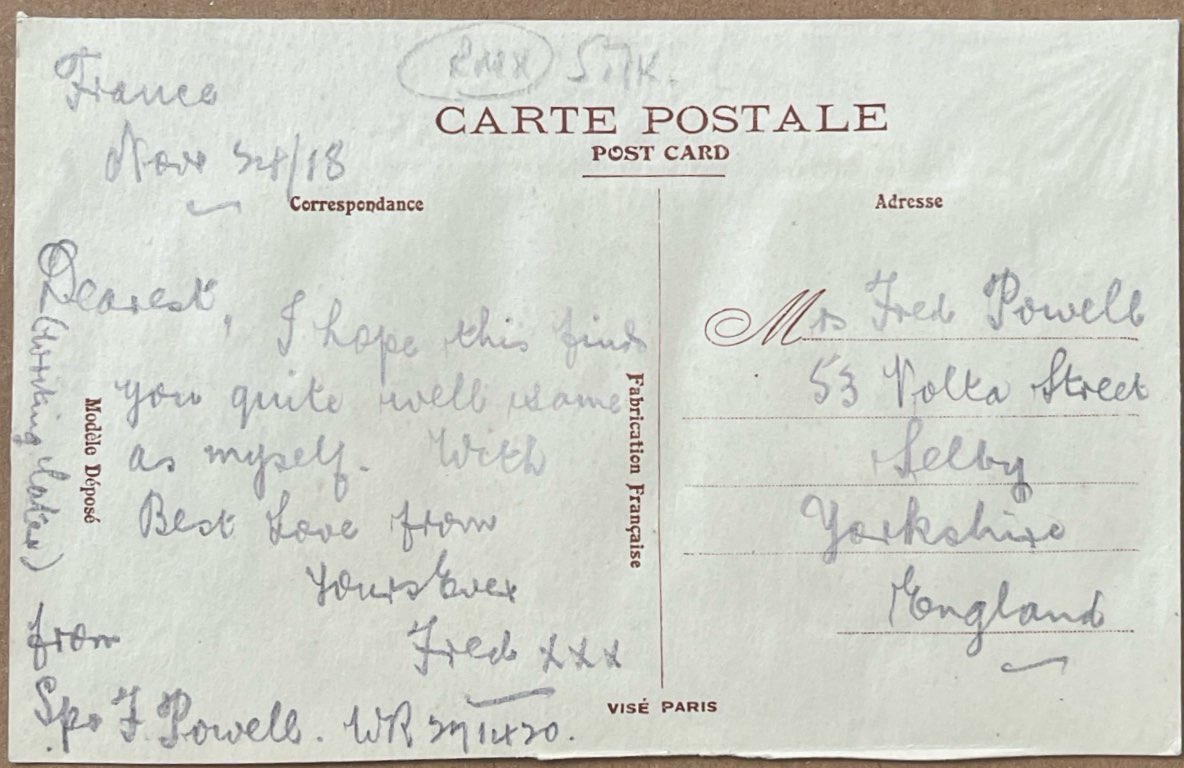 Silk.
France
CARTE POSTALE
POST CARD
Nov 24/18
Correspondance
Adresse
Dearest,
I hope this finds
you quite well same
as myself. With
Best Love from
Yours Ever
Fred xxx
(Writing Later)
from
Spr F. Powell. WR 271420.
Modèle Déposé
Fabrication Française
Mrs Fred Powell
53 Volta Street
Selby
Yorkshire
England
VISÉ PARIS